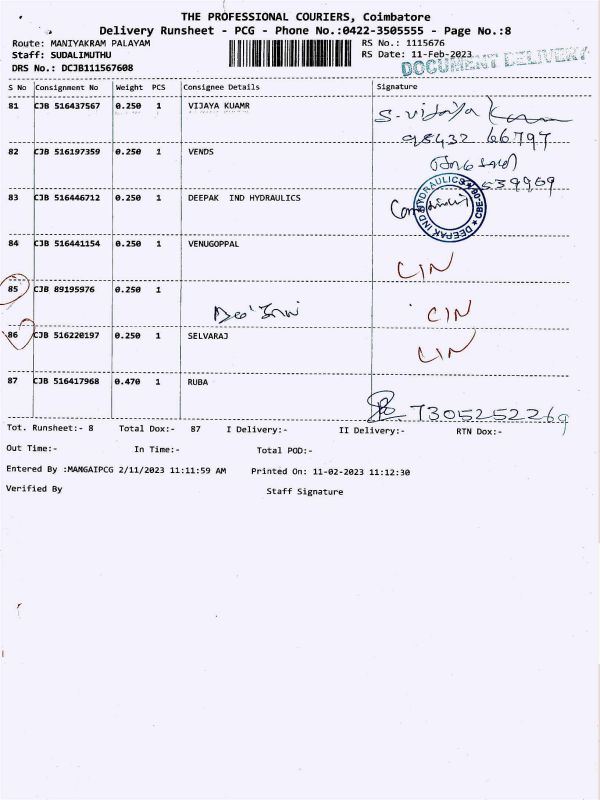 THE PROFESSIONAL COURIERS, Coimbatore
Delivery Runsheet - PCG - Phone No.:0422-3505555 - Page No.:8
Route: MANIYAKRAM PALAYAM RS No.: 1115676
Staff: SUDALIMUTHU RS Date: 11-Feb-2023
DRS No.: DCJB111567608 DOCUMENT DELIVERY
S No Consignment No Weight PCS Consignee Details Signature
81 CJB 516437567 0.250 1 VIJAYA KUAMR S. Vijaya
98432 66797
82 CJB 516197359 0.250 1 VENDS
83 CJB 516446712 0.250 1 DEEPAK IND HYDRAULICS
DEEPAK IND HYDRAULICS
84 CJB 516441154 0.250 1 VENUGOPPAL CIN
85 CJB 89195976 0.250 1 CIN
86 CJB 516220197 0.250 1 SELVARAJ CIN
87 CJB 516417968 0.470 1 RUBA 7305252269
Tot. Runsheet:- 8 Total Dox:- 87 I Delivery:- II Delivery:- RTN Dox:-
Out Time:- In Time:- Total POD:-
Entered By :MANGAIPCG 2/11/2023 11:11:59 AM Printed On: 11-02-2023 11:12:30
Verified By Staff Signature